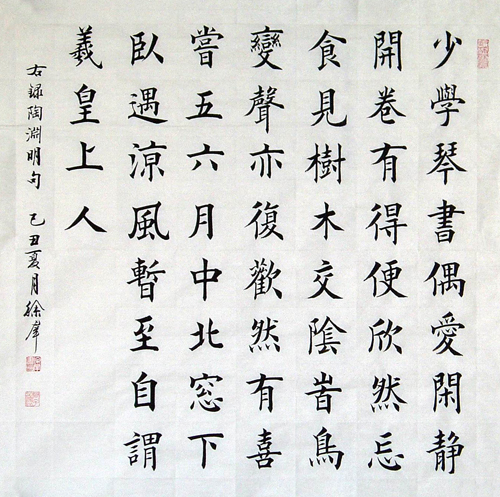 少學琴書偶愛閑静
開卷有得便欣然忘
食見樹木交陰峕鳥
變聲亦復歡然有喜
嘗五六月中北窓下
臥遇涼風暫至自謂
羲皇上人
右録陶淵明句 己丑夏月徐犖